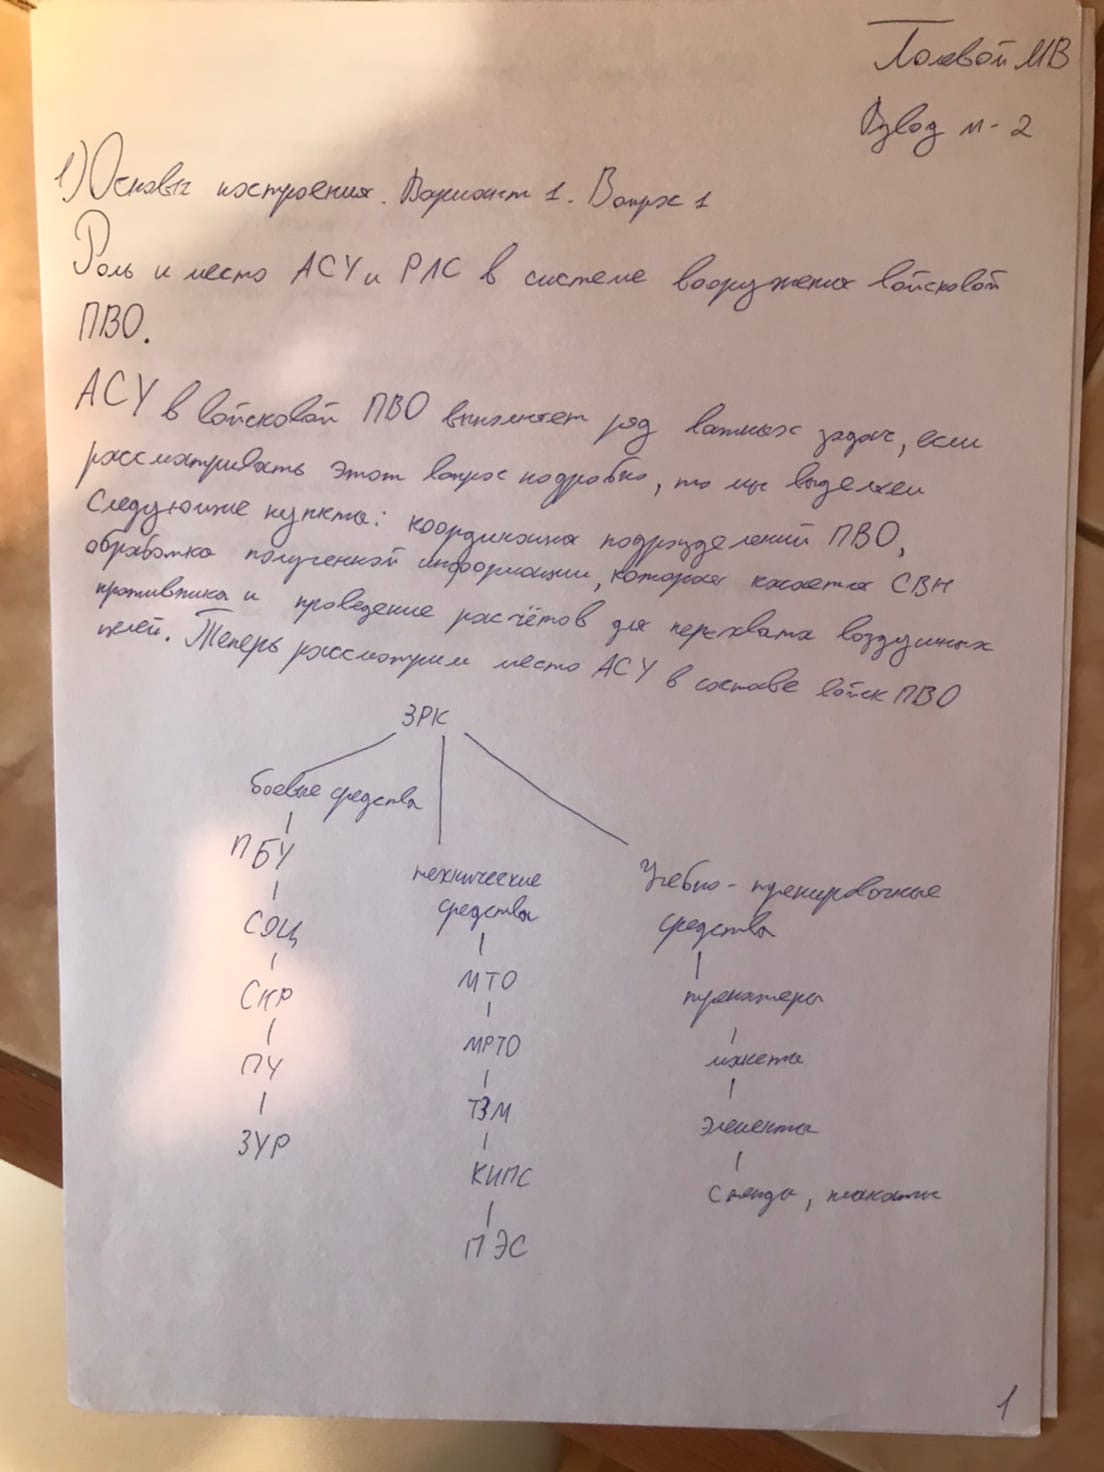 Полевой МВ
Взвод м-2
1) Основы построения. Вариант 1. Вопрос 1
Роль и место АСУ и РЛС в системе вооружения войсковой
ПВО.
АСУ в войсковой ПВО выполняет ряд важных задач, если
рассматривать этот вопрос подробно, то мы выделяем
следующие пункты: координация подразделений ПВО,
обработка полученной информации, которая касается СВН
противника и проведение расчётов для перехвата воздушных
целей. Теперь рассмотрим место АСУ в составе войск ПВО
ЗРК
боевые средства
технические средства
Учебно-тренировочные средства
ПБУ
СОЦ
СНР
ПУ
ЗУР
МТО
МРТО
ТЗМ
КИПС
ПЭС
тренажеры
макеты
Элементы
Стенды, плакаты
1